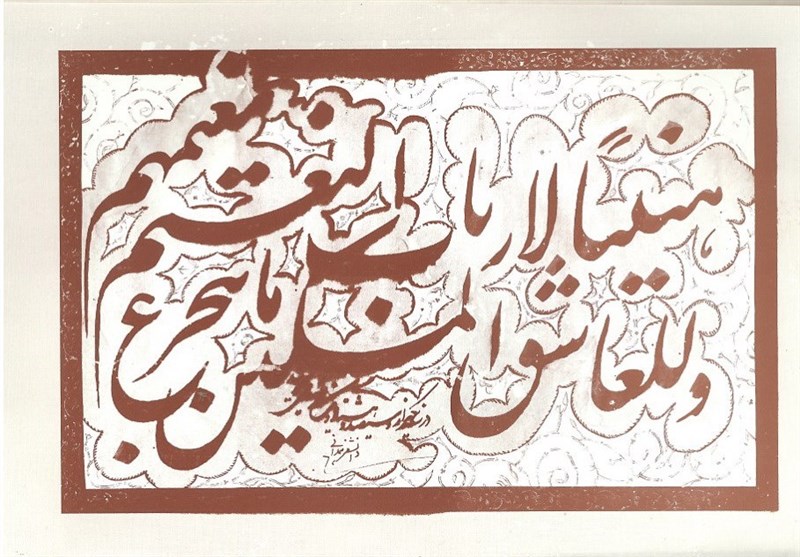 هنیئًا لارباب النعیم نعیمهم
وللعاشق المسکین ما یتجرع